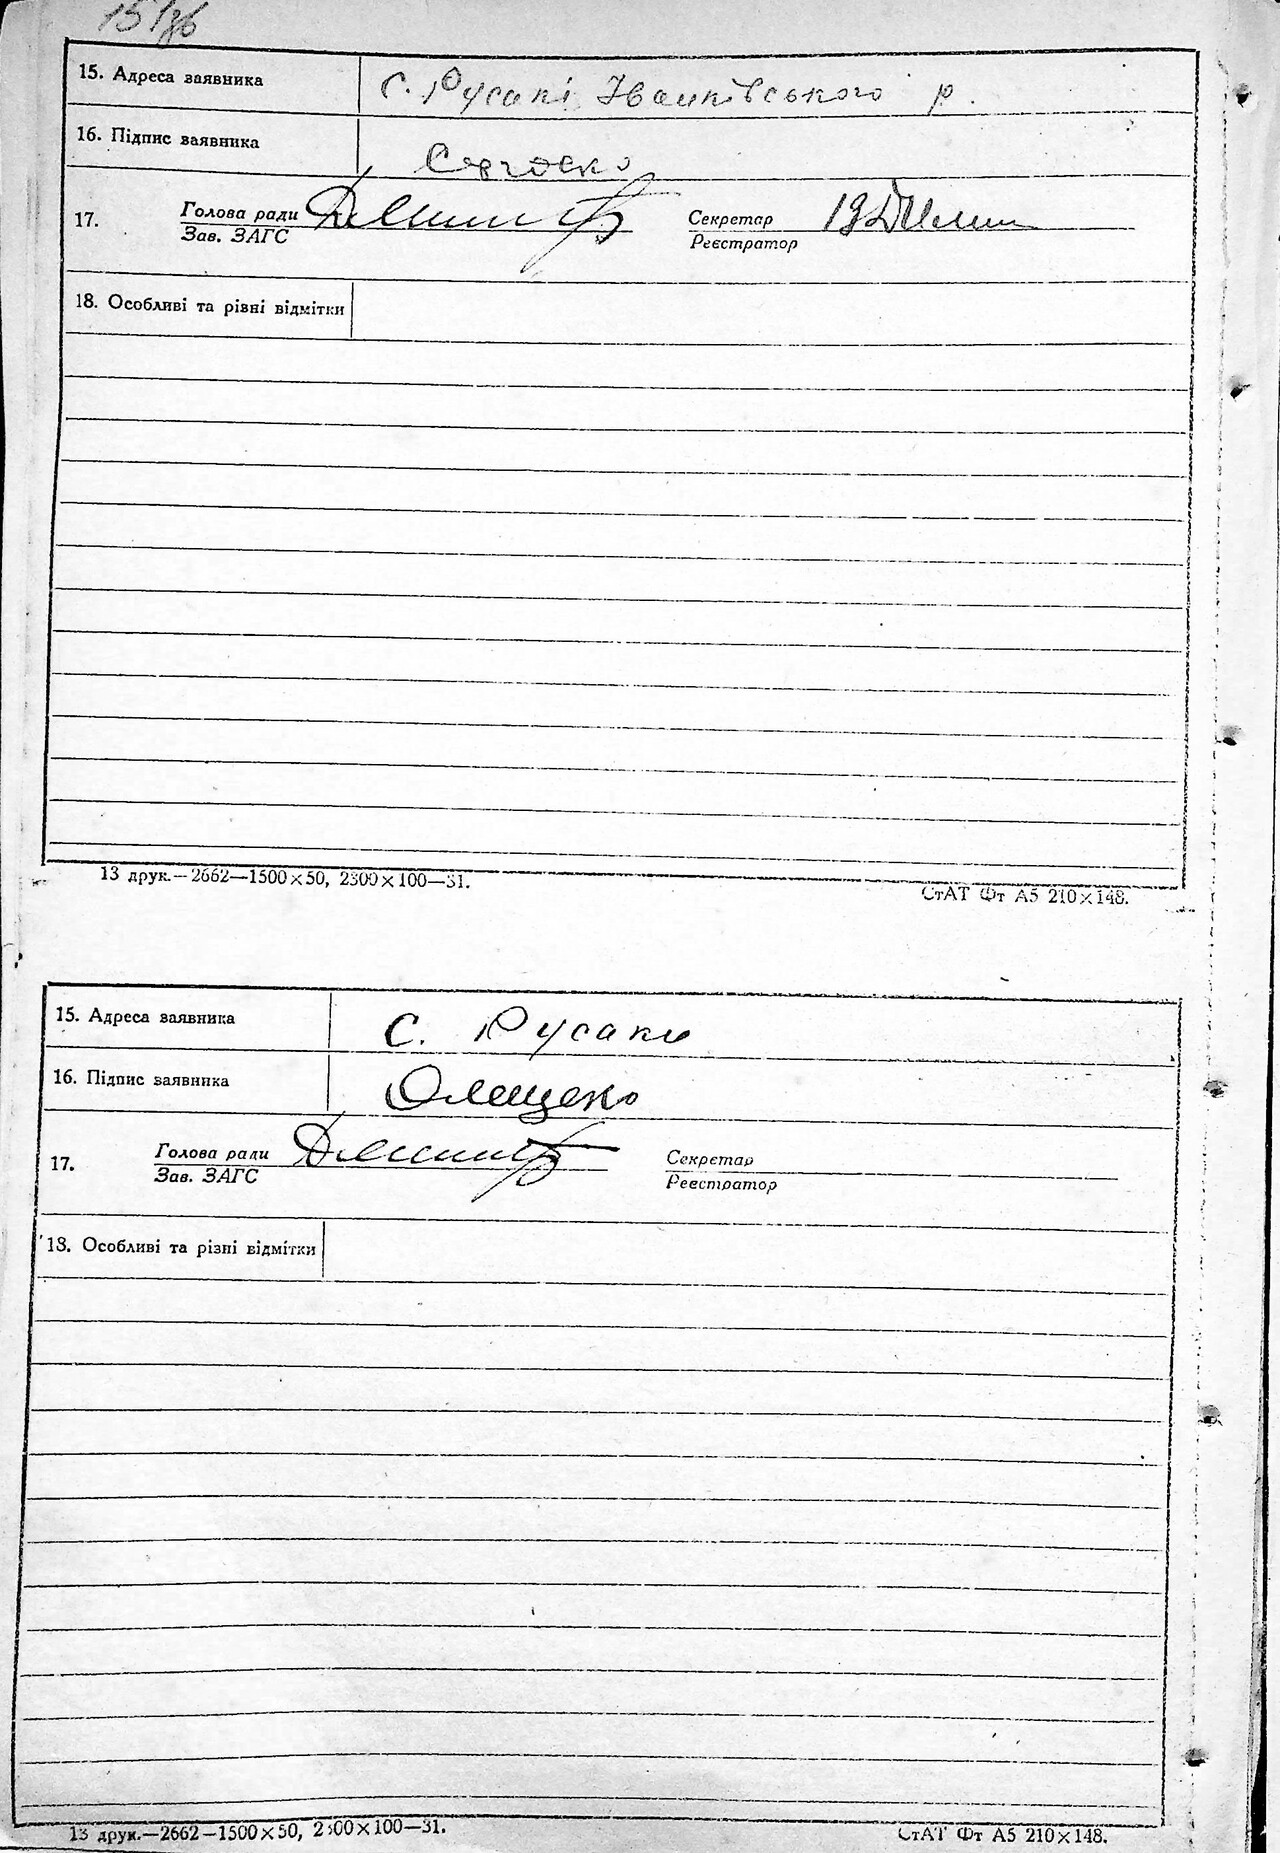 15 зв
15. Адреса заявника с. Русакі Іванківського р.
16. Підпис заявника
17. Голова ради Секретар
Зав. ЗАГС Реєстратор
18. Особливі та різні відмітки
13 друк.—2662—1500×50, 2300×100—31.
СтАТ Фт А5 210×148.
15. Адреса заявника с. Русаки
16. Підпис заявника Олещенко
17. Голова ради Секретар
Зав. ЗАГС Реєстратор
18. Особливі та різні відмітки
13 друк.—2662—1500×50, 2300×100—31.
СтАТ Фт А5 210×148.